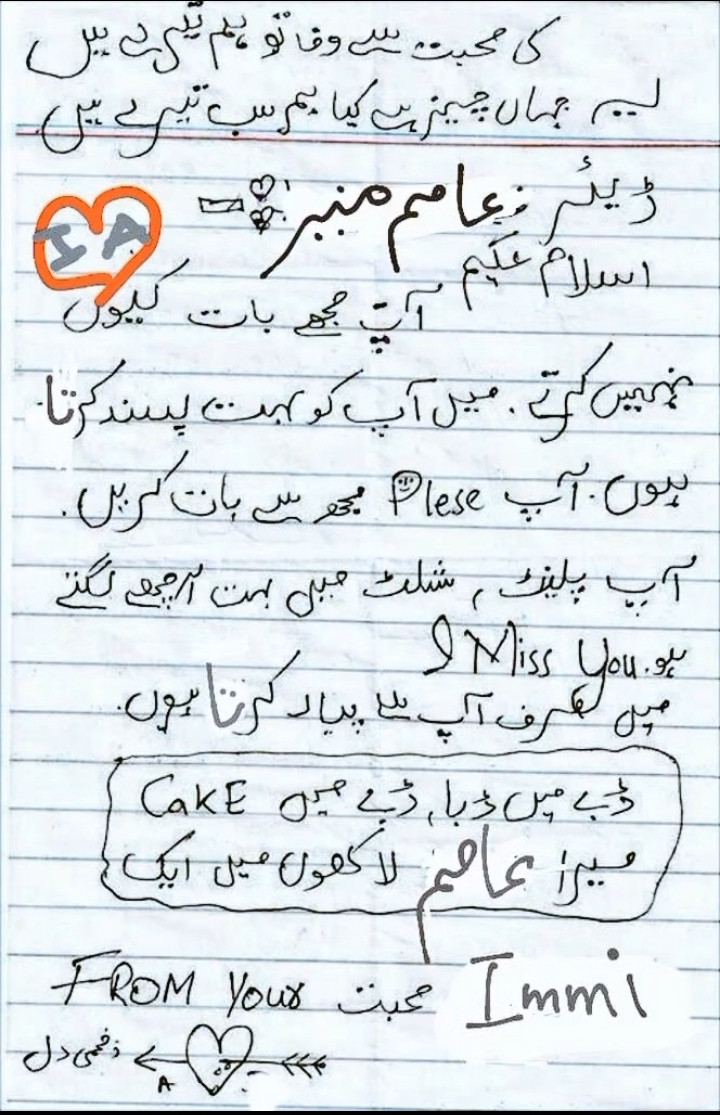 کی محبت سے وفا تو ہم تیرے ہیں
یہ جہاں چیز ہے کیا ہم سب تیرے ہیں
ڈیئر عاصم منیر
I A
اسلام علیکم
آپ مجھے بات کیوں
نہیں کرتے. میں آپ کو بہت پسند کرتا
ہوں. آپ Plese مجھ سے بات کریں.
آپ پلینٹ, شلٹ میں بہت اچھے لگتے
ہو. I Miss You
میں صرف آپ سے پیار کرتا ہوں.
ڈبے میں ڈبا, ڈبے میں CaKE
میرا عاصم لاکھوں میں ایک
FROM Your محبت Immi
زخمی دل
A